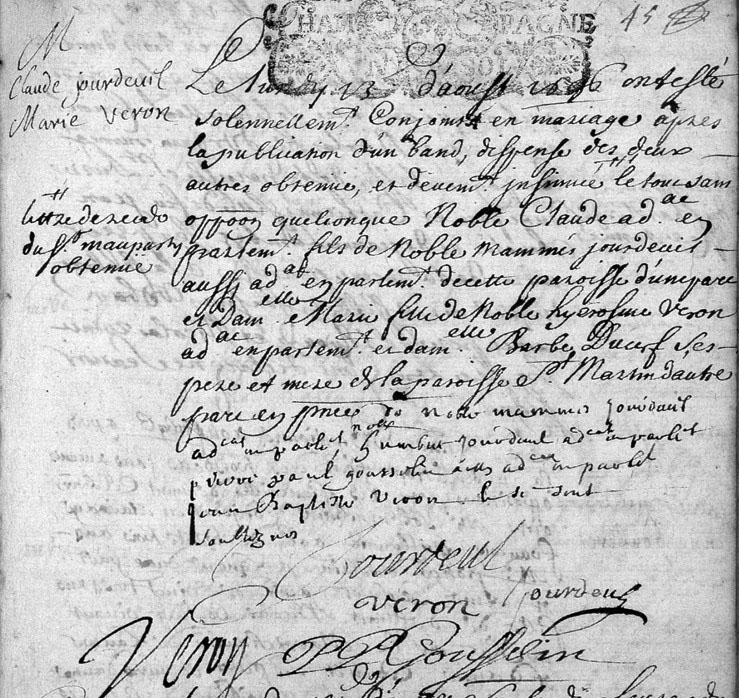 CHAMPAGNE
45
M
Claude jourdeuil
Marie Veron
Le lundy 13 d'aoust 1696 ont esté
solennellemt. Conjoints en mariage apres
la publication d'un band, dispense des deux
autres obtenüe, et devemt. insinuée le tout sans
oppoon quelconque Noble Claude adat. en
parlemt. fils de Noble Mammés jourdeuil
aussi adat. en parlemt. de cette paroisse d'une part
et Damelle. Marie fille de Noble hyerosme Veron
adat. en parlemt. et damelle. Barbe Ducerf ses
pere et mere de la paroisse St. Martin d'autre
part en pnce de noble mammes jourdeuil
adcat en parlet, noble humbert jourdeuil adcat en parlet
pierre paul gousselin aussi adcat en parlet
jean Baptiste veron qui se sont
soussignes
lettre de
du Sr.
obtenüe
Jourdeuil
veron Jourdeuil
Veron PP Gousselin